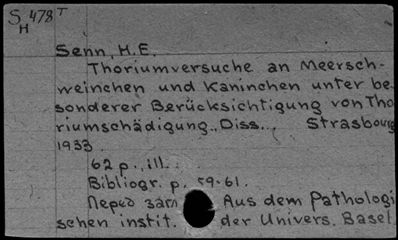 S 478 T
H
Senn, H.E.
Thoriumversuche an Meersch-
weinchen und Kaninchen unter be
sonderer Berücksichtigung von Tho
riumschädigung., Diss... Strasbourg
1933
62 p., ill.
Bibliogr. p. 59-61.
Перед заг Aus dem Pathologi
schen instit. der Univers. Basel.